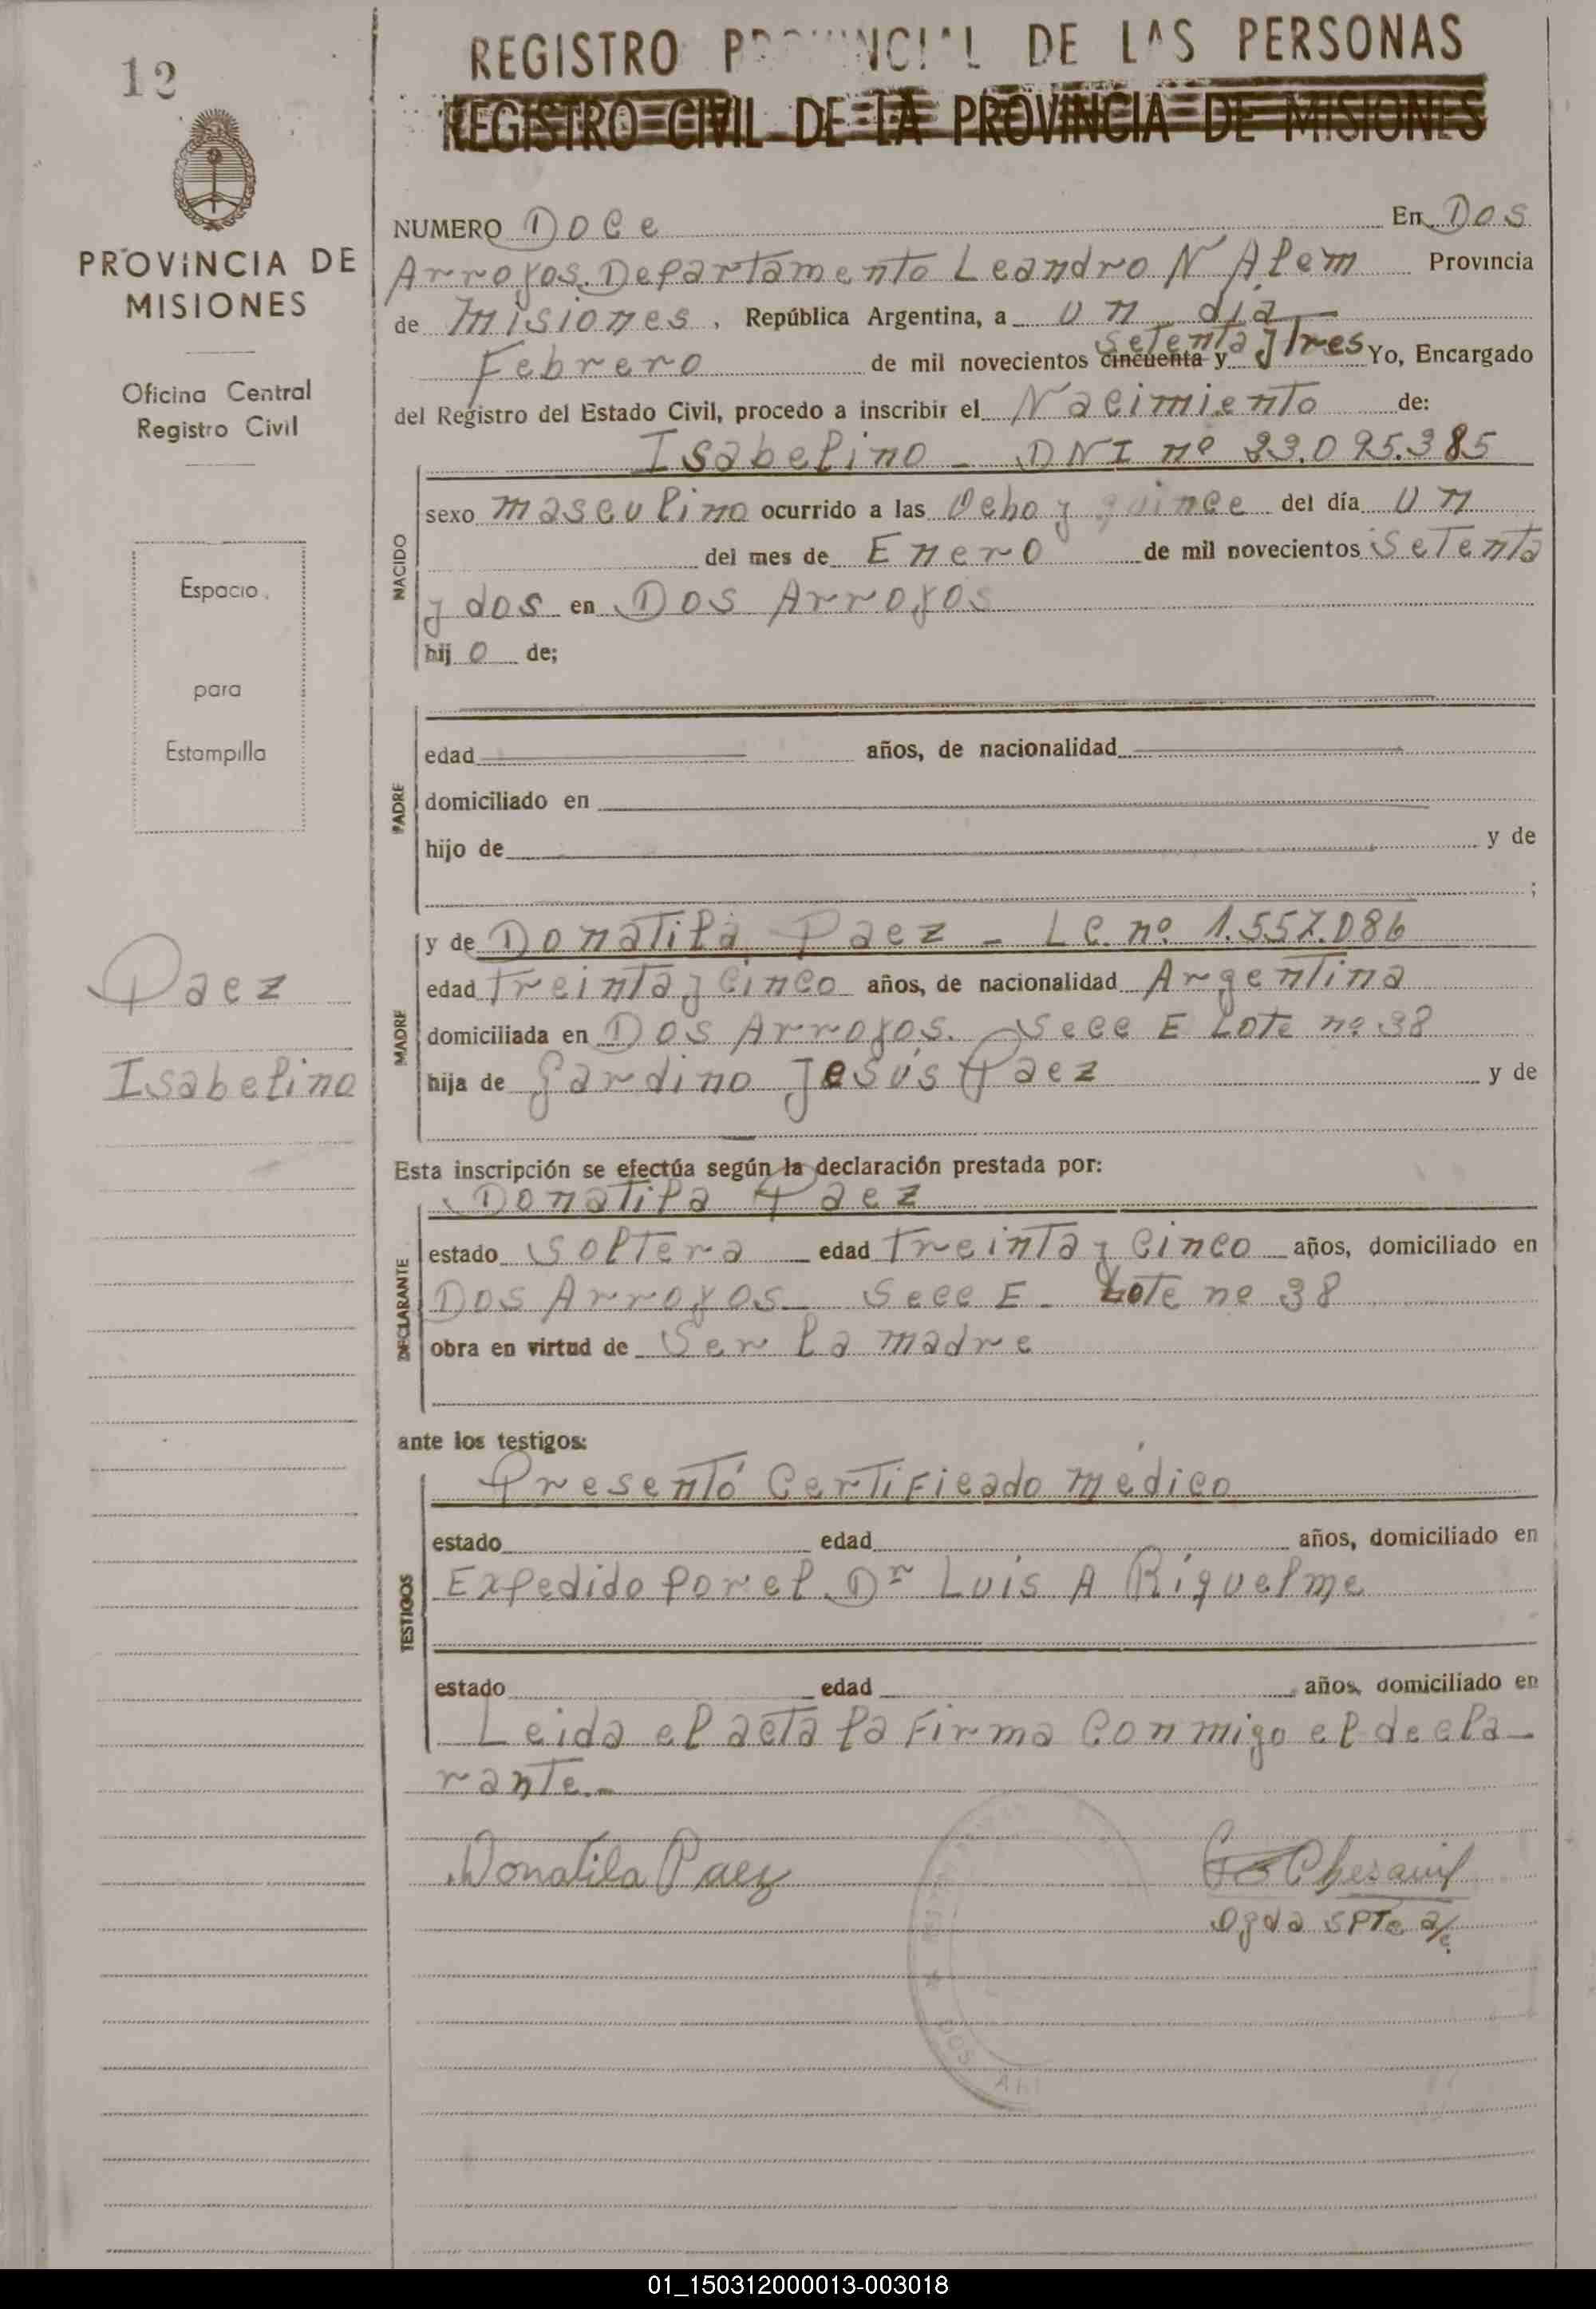 12
REGISTRO PROVINCIAL DE LAS PERSONAS
REGISTRO CIVIL DE LA PROVINCIA DE MISIONES
PROVINCIA DE
MISIONES
Oficina Central
Registro Civil
Espacio
para
Estampilla
Paez
Isabelino
NUMERO Doce En Dos
Arroyos. Departamento Leandro N Alem Provincia
de Misiones, República Argentina, a un día
Febrero de mil novecientos cincuenta y setenta y tres Yo, Encargado
del Registro del Estado Civil, procedo a inscribir el Nacimiento de:
Isabelino - DNI nº 23.095.385
NACIDO
sexo masculino ocurrido a las Ocho y quince del día un
del mes de Enero de mil novecientos setenta
y dos en Dos Arroyos
hijo de;
PADRE
edad años, de nacionalidad
domiciliado en
hijo de y de
;
MADRE
y de Donatila Paez - LC. nº 1.557.086
edad treinta y cinco años, de nacionalidad Argentina
domiciliada en Dos Arroyos. Secc E Lote nº 38
hija de Gardino Jesús Paez y de
Esta inscripción se efectúa según la declaración prestada por:
DECLARANTE
Donatila Paez
estado Soltera edad treinta y cinco años, domiciliado en
Dos Arroyos - Secc E - Lote nº 38
obra en virtud de ser la madre
ante los testigos:
TESTIGOS
Presentó Certificado médico
estado edad años, domiciliado en
Expedido por el Dr Luis A Riquelme
estado edad años, domiciliado en
Leida el acta la firma conmigo el decla-
rante.-
Donatila Paez
DOS ARR
01_150312000013-003018